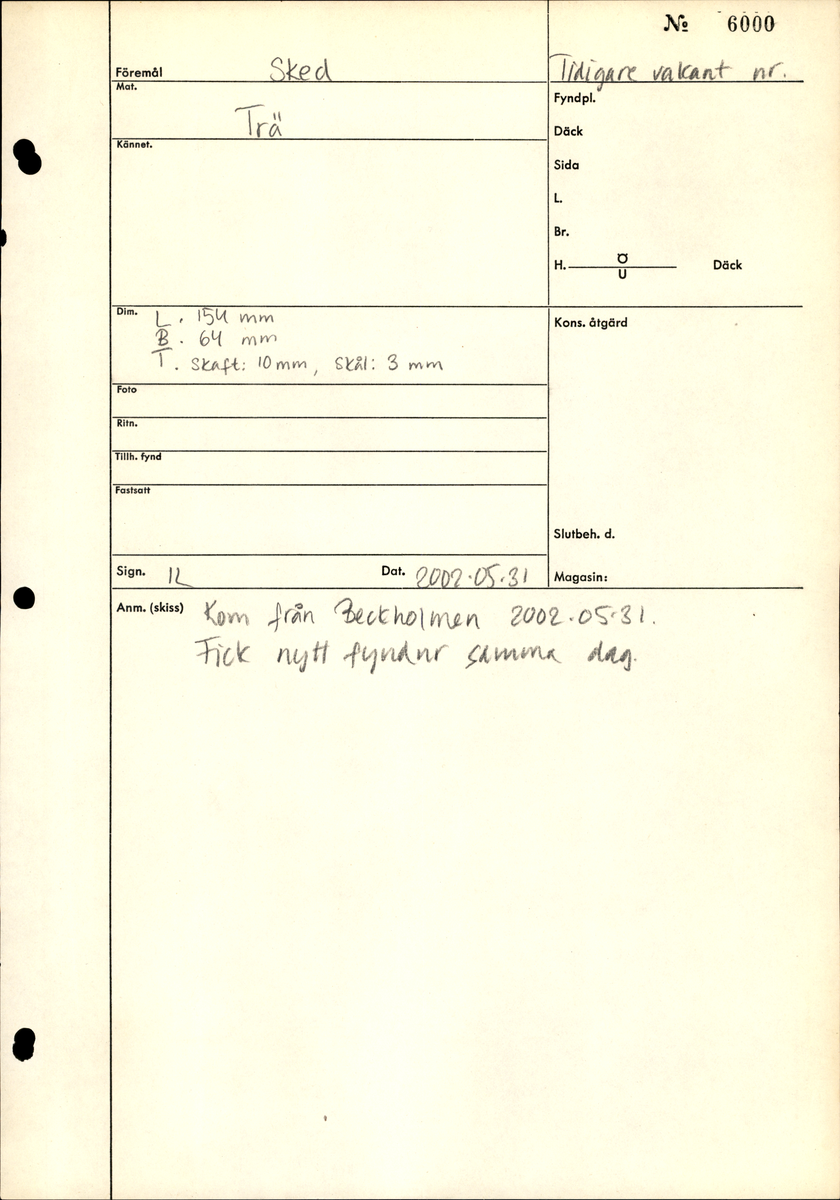 № 6000
Föremål Sked
Tidigare vakant nr.
Mat. Trä
Kännet.
Fyndpl.
Däck
Sida
L.
Br.
H. Ö U Däck
Dim. L. 154 mm
B. 64 mm
T. Skaft: 10 mm, Skål: 3 mm
Kons. åtgärd
Foto
Ritn.
Tillh. fynd
Fastsatt
Slutbeh. d.
Sign. IL Dat. 2002.05.31 Magasin:
Anm. (skiss) Kom från Beckholmen 2002.05.31.
Fick nytt fyndnr samma dag.